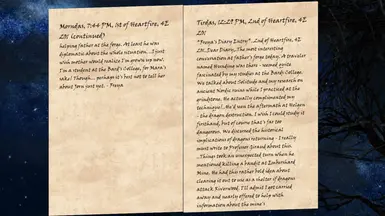 Morndas, 7:44 PM, 1st of Heartfire, 4E
201 (continued)
helping father at the forge. At least he was
diplomatic about the whole situation...I just
wish mother would realize I'm grown up now!
I'm a student at the Bard's College, for Mara's
sake! Though... perhaps it's best not to tell her
about Jorn just yet. - Freya
Tirdas, 12:29 PM, 2nd of Heartfire, 4E
201
*Freya's Diary Entry* 2nd of Heartfire, 4E
201..Dear Diary, The most interesting
conversation at father's forge today! A traveler
named Hunding was there - seemed quite
fascinated by my studies at the Bards College.
We talked about Solitude and my research on
ancient Nordic ruins while I practiced at the
grindstone. He actually complimented my
technique!..He'd seen the aftermath at Helgen
- the dragon destruction. I wish I could study it
firsthand, but of course that's far too
dangerous. We discussed the historical
implications of dragons returning - I really
must write to Professor Giraud about this.
..Things took an unexpected turn when he
mentioned killing a bandit at Embershard
Mine. He had this rather bold idea about
clearing it out to use as a shelter if dragons
attack Riverwood. I'll admit I got carried
away and nearly offered to help with
information about the mine's